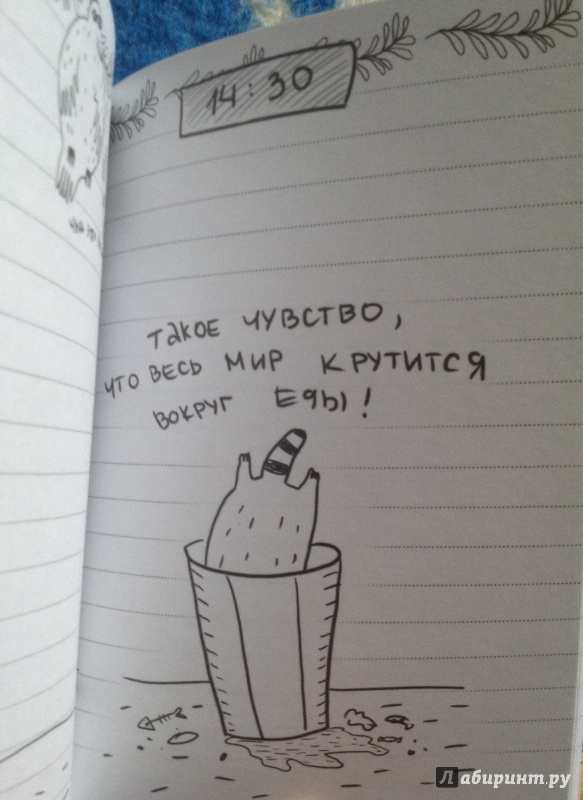 14:30
такое чувство,
что весь мир крутится
вокруг еды!
Лабиринт.ру